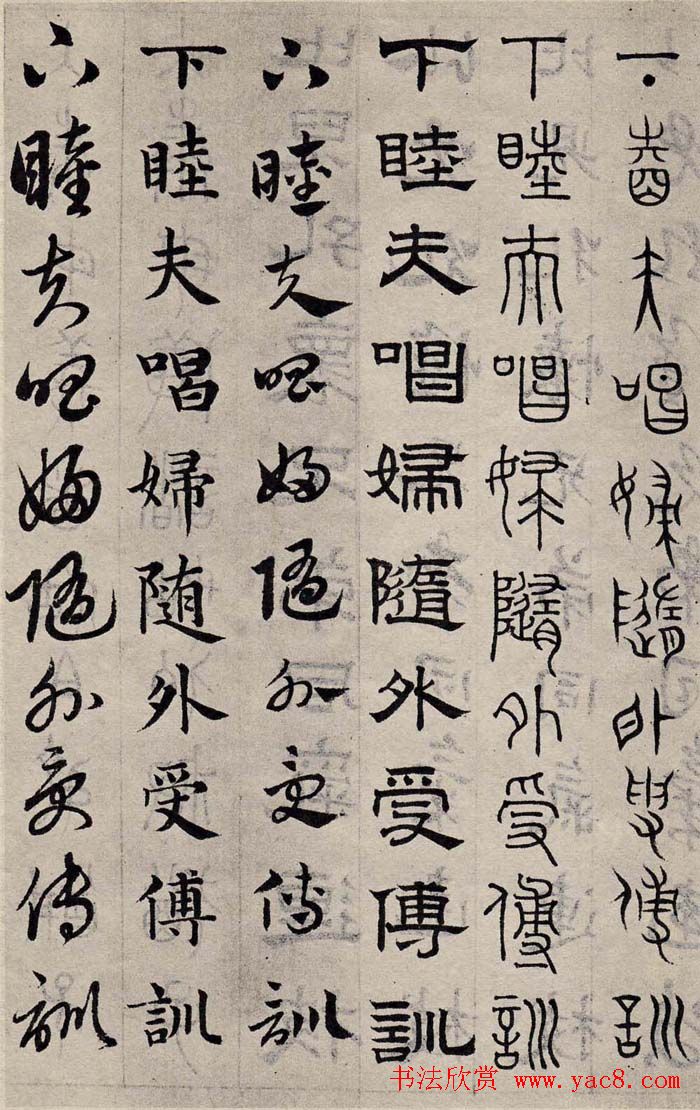 下睦夫唱婦隨外受傅訓
下睦夫唱婦隨外受傅訓
下睦夫唱婦隨外受傅訓
下睦夫唱婦隨外受傅訓
下睦夫唱婦随外受傅訓
下睦夫唱婦隨外受傅訓
书法欣赏 www.yac8.com